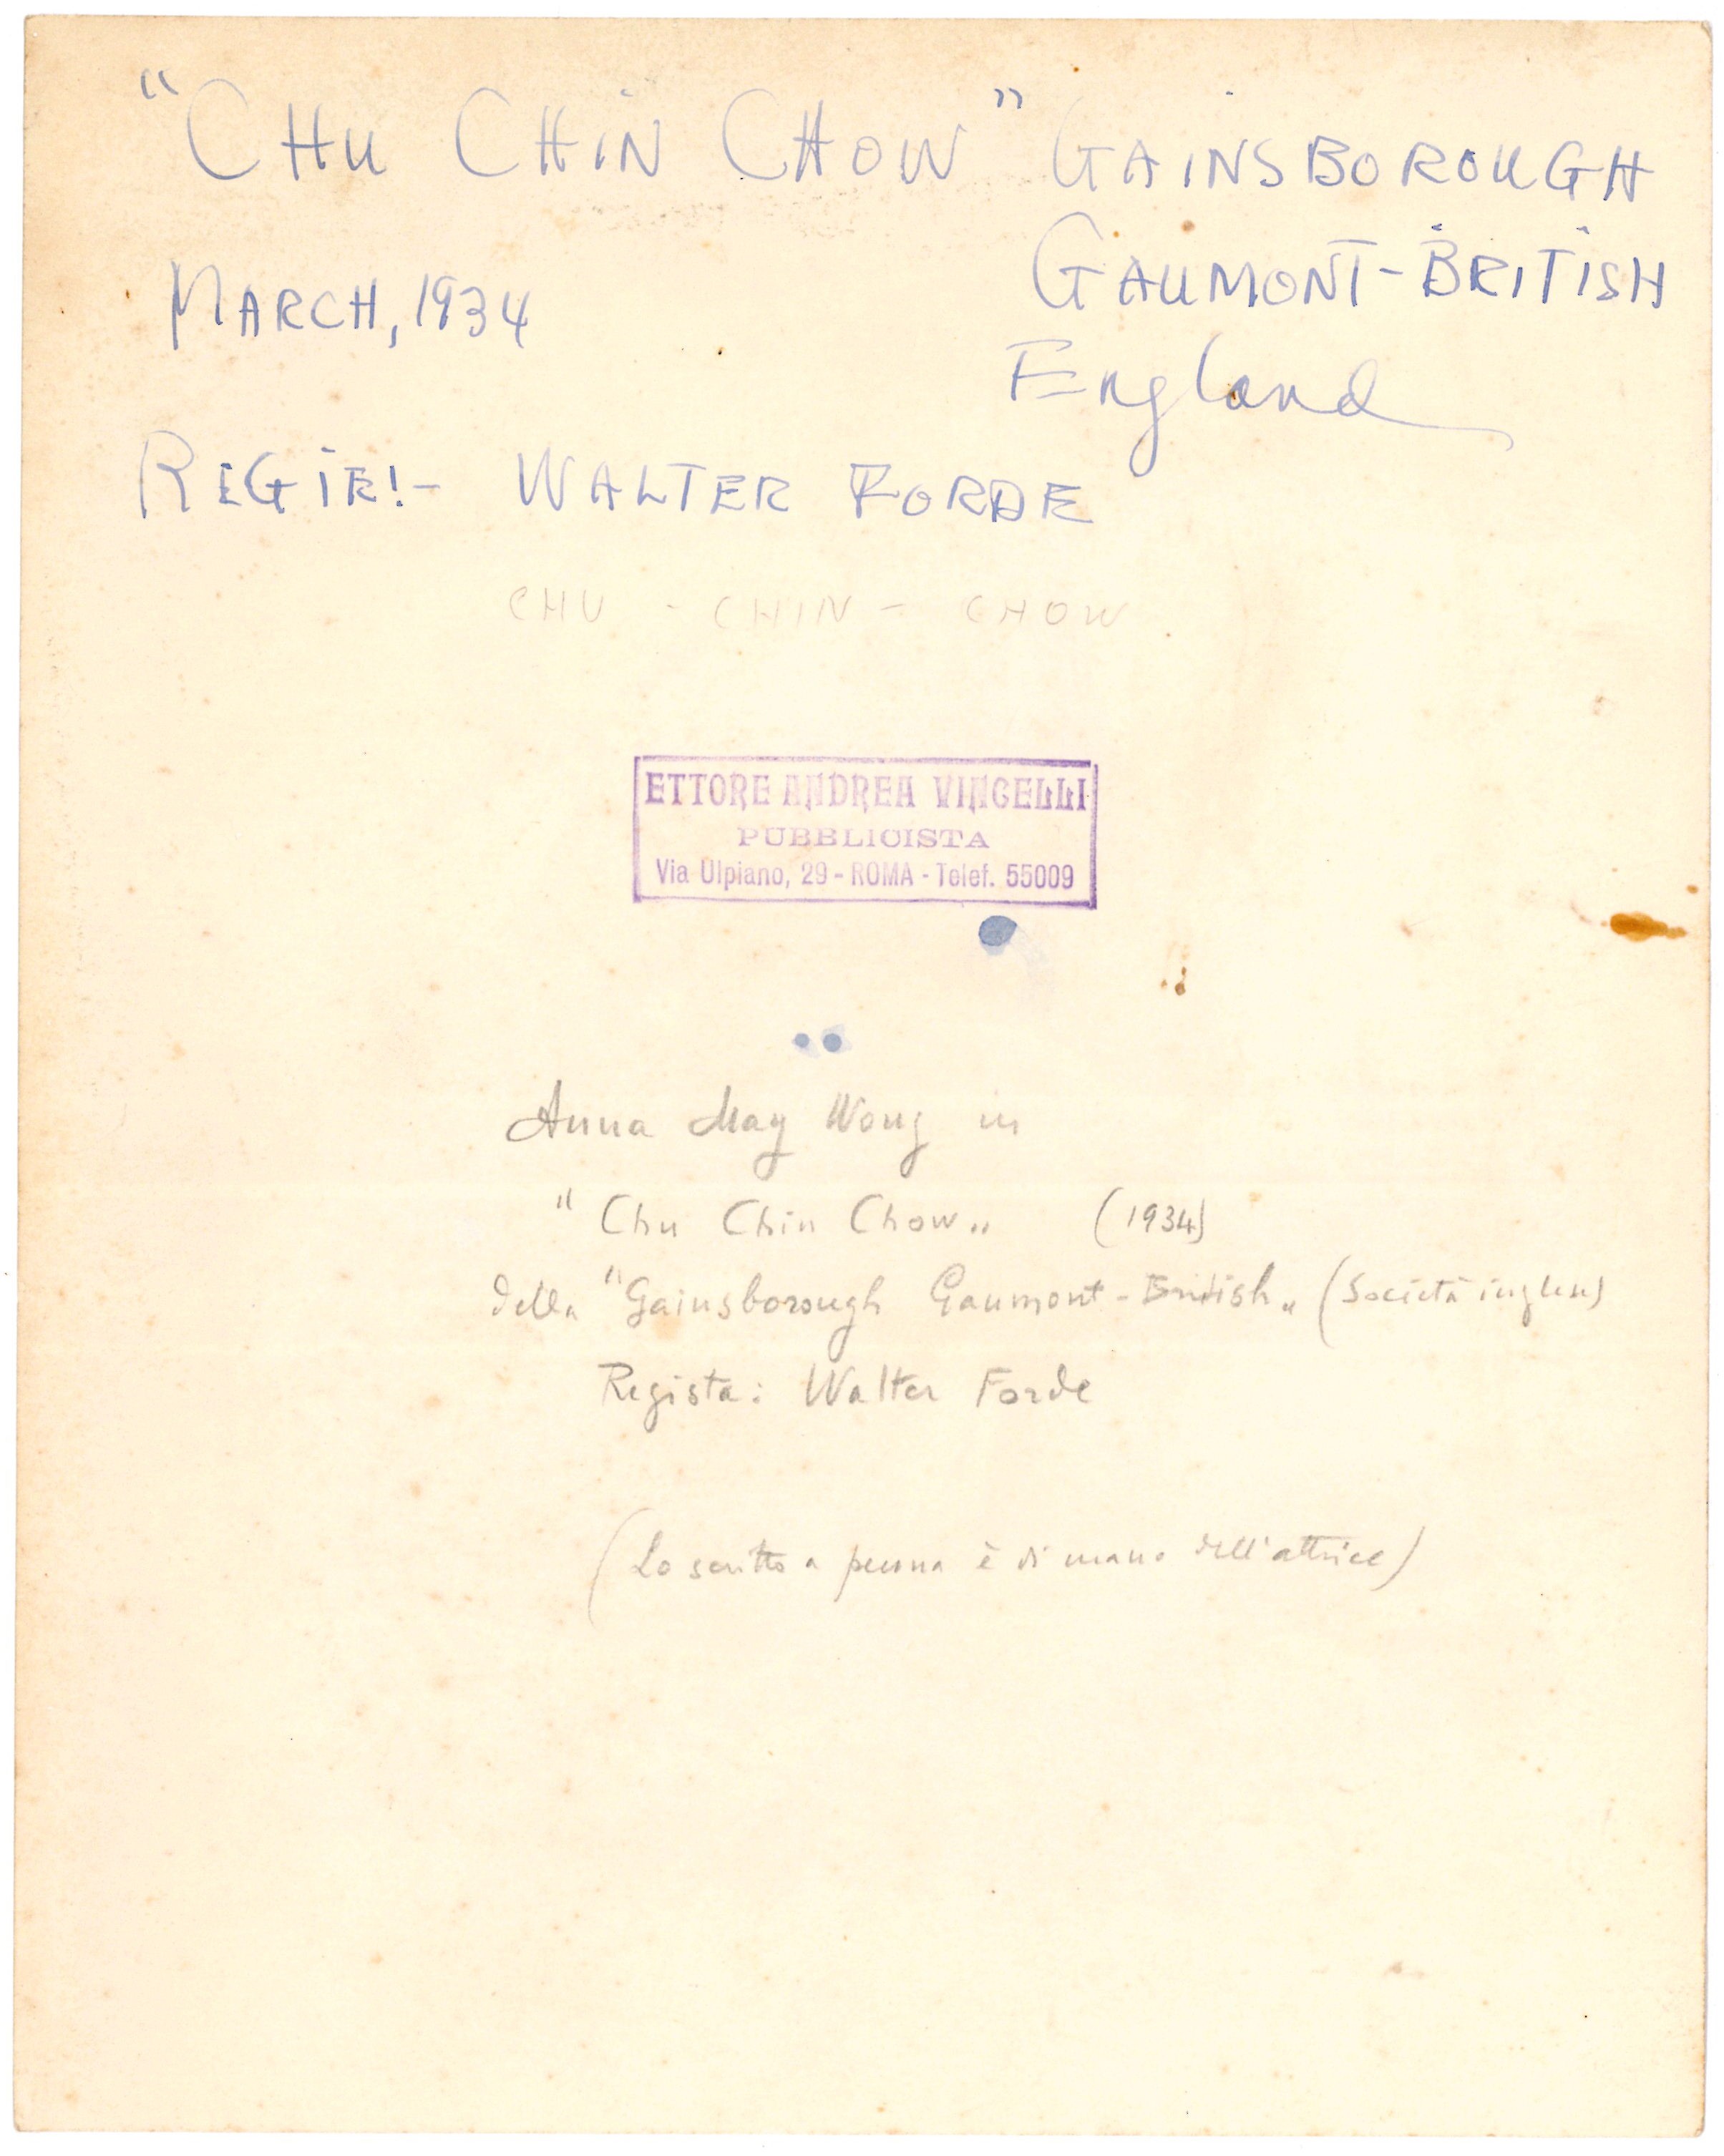 “CHU CHIN CHOW” GAINSBOROUGH
GAUMONT-BRITISH
MARCH, 1934
England
REGIE!- WALTER FORDE
CHU - CHIN - CHOW
ETTORE ANDREA VINCELLI
PUBBLICISTA
Via Ulpiano, 29 - ROMA - Telef. 55009
Anna May Wong in
"Chu Chin Chow„ (1934)
della "Gainsborough Gaumont-British„ (Società inglese)
Regista: Walter Forde
(Lo scritto a penna è di mano dell'attrice)